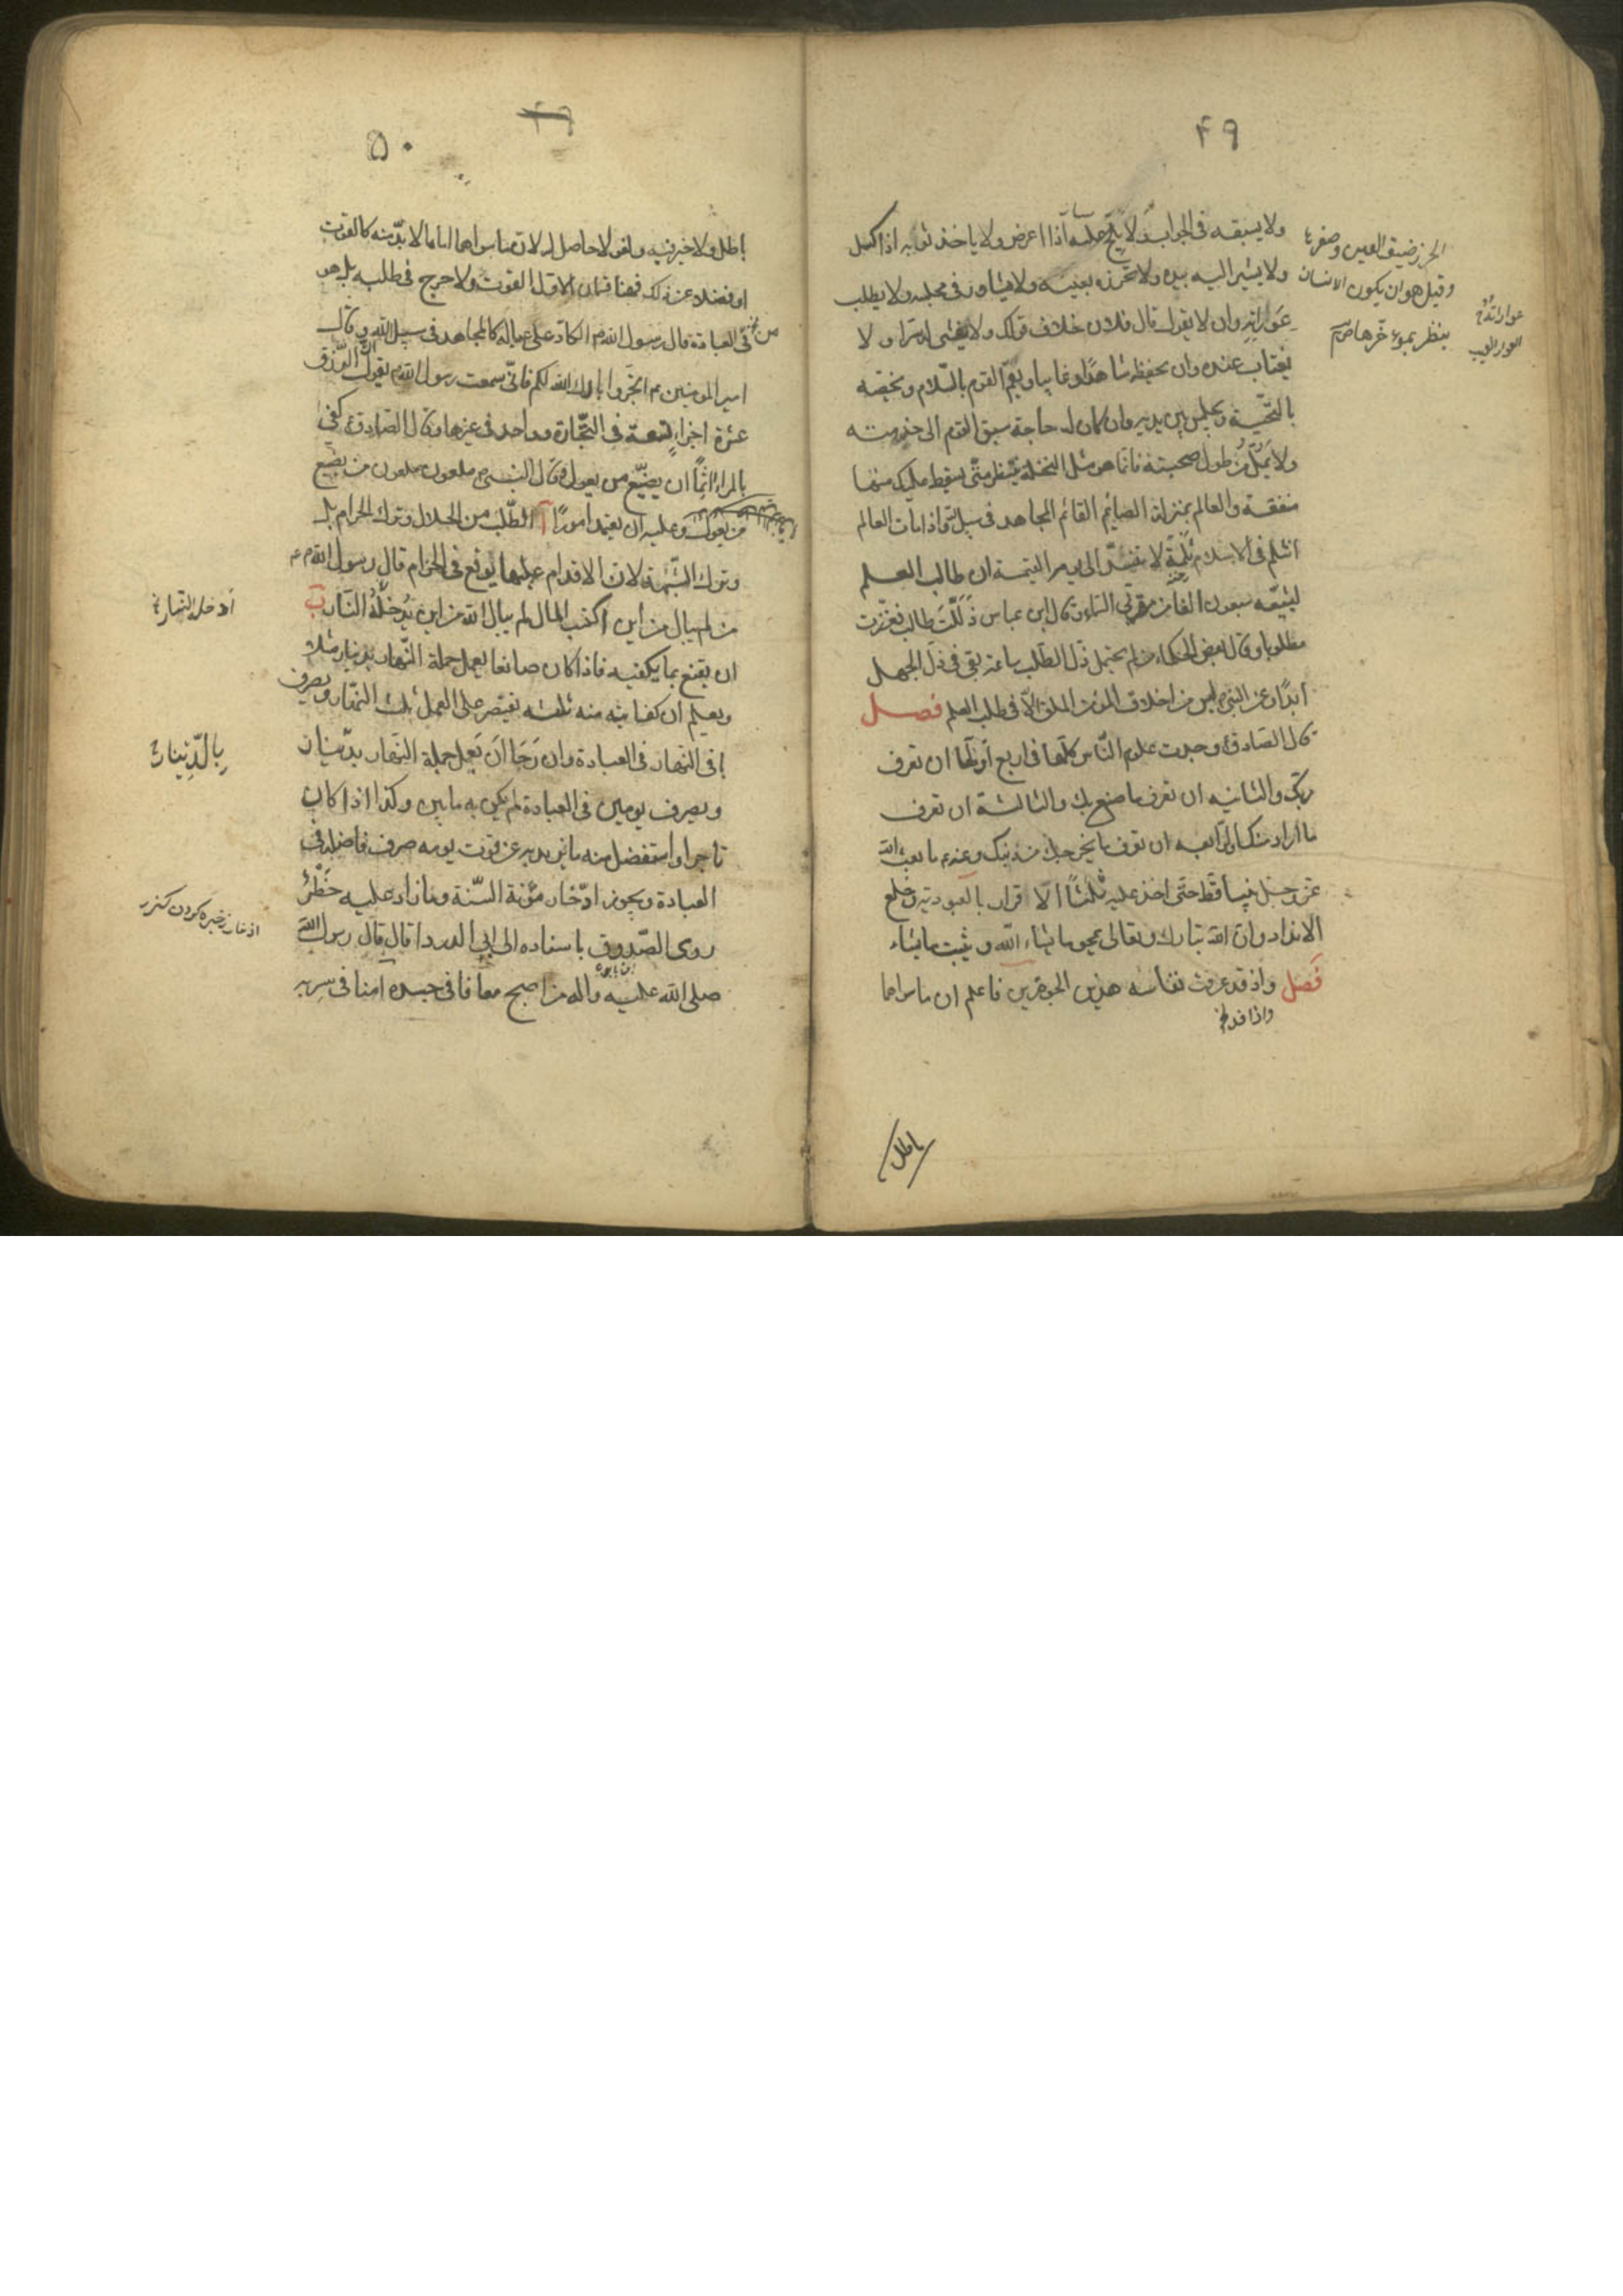 ۴۹
ولا يسبقه فى الجواب ولا يلح عليه اذا اعرض ولا ياخذ بثوبه اذا كسل
ولا يشير اليه بيده ولا تخزره بعينه ولا يشاور فى مجلسه ولا يطلب
عوراته وان لا يقول قال فلان خلاف قولك ولا يفشى له سرا ولا
يغتاب عنده وان يحفظه شاهدا وغايبا ويعم القوم بالسلام ويخصه
بالتحية ويجلس بين يديه وان كان له حاجة سبق القوم الى خدمته
ولا يمل من طول صحبته فانما هو مثل النخلة ينتظر متى يسقط عليك منها
منفقة والعالم بمنزلة الصايم القائم المجاهد فى سبيل الله واذا مات العالم
انثلم فى الاسلام ثلمة لا تنسد الى يوم القيمة ان طالب العلم
ليشيعه سبعون الفا من مقربى السماء وقال ابن عباس ذللت طالبا فعززت
مطلوبا وقال بعض الحكماء من لم يحتمل ذل الطلب ساعة بقى فى ذل الجهل
ابدا وعن النبى ليس من اخلاق المؤمن الملق الا فى طلب العلم فصل
قال الصادق وجدت علوم الناس كلها فى اربع اولها ان تعرف
ربك والثانيه ان تعرف ما صنع بك والثالثة ان تعرف
ما اراد منك والرابعه ان تعرف ما يخرجك من دينك وعنه ما بعث الله
عز وجل نبيا قط حتى اخذ عليه ثلثا الاقرار بالعبودية وخلع
الانداد وان الله تبارك وتعالى يمحو ما يشاء الله ويثبت ما يشاء
فصل واذ قد عرفت نفاسه هذين الجوهرين فاعلم ان ما سواهما
واذا قد خ
باطل
الخزر ضيق العين وصغرها
وقيل هو ان يكون الانسان
ينظر بمؤخرها ص
عوارته خ
العوار العيب
۴۹
۵۰
باطل ولا خير فيه ولغو لا حاصل له لان ما سواهما اما ما لا بد منه كالقوت
او فضلا عن ذلك فهنا قسمان الاول القوت ولا حرج فى طلبه بل هو
من العبادة قال رسول الله الكاد على عياله كالمجاهد فى سبيل الله وقال
امير المومنين ع اتجروا بارك الله لكم فانى سمعت رسول الله يقول ان الرزق
عشرة اجزاء تسعة فى التجارة وواحد فى غيرها وقال الصادق كفى
بالمرء اثما ان يضيع من يعول وقال النبى ملعون ملعون من يضيع
من يعول وعليه ان يعتمد امورا آ الطلب من الحلال وترك الحرام بل
وترك الشبهة لان الاقدام عليها يوقع فى الحرام قال رسول الله
من لم يبال من اين اكتسب المال لم يبال الله من اين يدخله النار ب
ان يقنع بما يكفيه فاذا كان صانعا يعمل جملة النهار بدينار مثلا
ويعلم ان كفايته منه ثلثه فيقتصر على العمل ثلث النهار ويصرف
باقى النهار فى العبادة وان رجا ان يعمل جملة النهار بدينار
ويصرف يومين فى العبادة لم يكن به باس وكذا اذا كان
تاجرا واستفضل منه ما يزيد عن قوت يومه صرف فاضله فى
العبادة ويجوز ادخار مؤنة السنة وما زاد عليه خطر
روى الصدوق باسناده الى ابى الدردا قال قال رسول الله
صلى الله عليه واله من اصبح معافا فى جسده آمنا فى سربه
ابن بابويه
ادخله النار خ
بالدينار خ
ادخار ذخيره كردن كنز